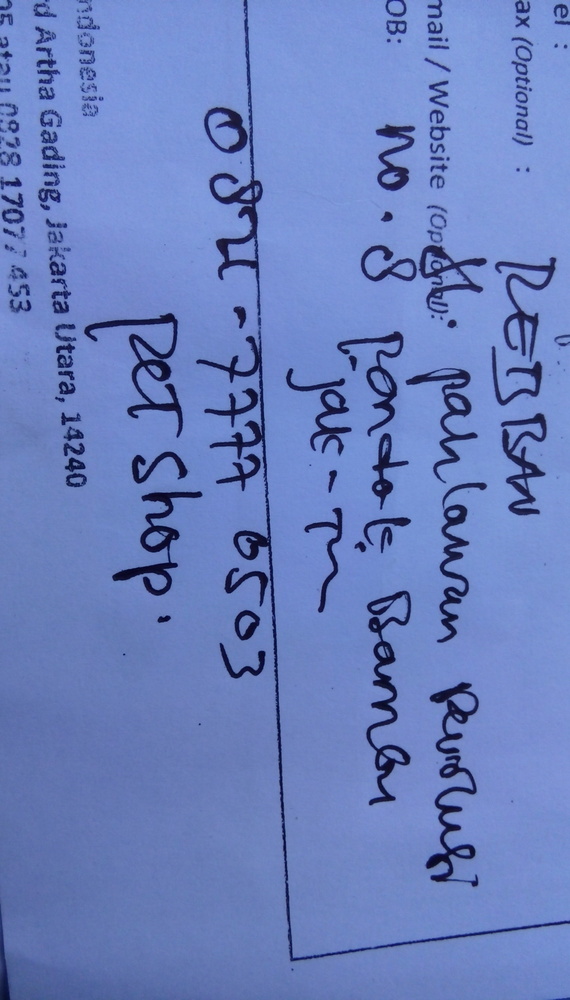 el :
ax (Optional) :
PETS BAN
mail / Website (Optional):
Jl. pahlawan Revolusi
OB:
no. 8 Pondok Bambu
jak - Tim
7777 6503
pet shop.
ndonesia
d Artha Gading, Jakarta Utara, 14240
atau 0828 1707 453